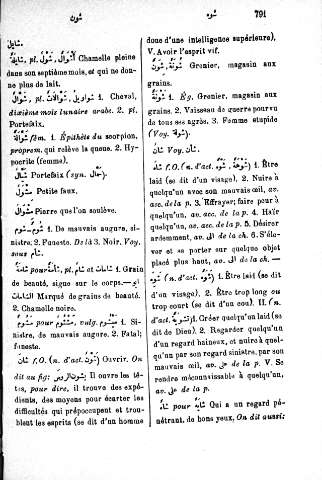 شون
شوه
791
شايل
شَائِلَة, pl. شُوَّل, أَشْوَال Chamelle pleine
dans son septième mois, et qui ne don-
ne plus de lait.
شَوَّال, pl. شَوَاوِيل, شَوَّالَات 1. Cheval,
dixième mois lunaire arabe. 2. pl.
Portefaix.
شَوَّالَة fém. 1. Épithète du scorpion,
proprem. qui relève la queue. 2. Hy-
pocrite (femme).
شَيَّال Portefaix (syn. حَمَّال).
Petite faux.
Pierre que l'on soulève.
1. De mauvais augure, si-
nistre. 2. Funeste. De là 3. Noir. Voy.
sous شأم.
شَامَة pour شَأْمَة, pl. شَام et شَامَات 1. Grain
de beauté, signe sur le corps.
الشامات Marqué de grains de beauté.
2. Chamelle noire.
مَشُوم pour مَشْؤُوم, vulg. 1. Si-
nistre, de mauvais augure. 2. Fatal;
funeste.
شَان f. O. (n. d'act. شَوْن) Ouvrir. On
dit au fig: يشون الرءوس Il ouvre les tê-
tes, pour dire, il trouve des expé-
dients, des moyens pour écarter les
difficultés qui préoccupent et trou-
blent les esprits (se dit d'un homme
doué d'une intelligence supérieure),
V. Avoir l'esprit vif.
شُونَة, شُوَن Grenier, magasin aux
grains.
شُونَة 1. Ég. Grenier, magasin aux
grains. 2. Vaisseau de guerre pourvu
de tous ses agrès. 3. Femme stupide
(Voy. شوه).
شان Voy. شَأْن
شَاهَ f. O. (n. d'act. شَوْه, شَوْهَة) 1. Être
laid (se dit d'un visage). 2. Nuire à
quelqu'un avec son mauvais œil, av.
acc. de la p. 3. Effrayer; faire peur à
quelqu'un, av. acc. de la p. 4. Haïr
quelqu'un av. acc. de la p. 5. Désirer
ardemment, av. إلى de la ch. 6. S'éle-
ver et se porter sur quelque objet
placé plus haut, av. إلى de la ch. —
شَوِهَ (n. d'act. شَوَه) 1. Être laid (se dit
d'un visage). 2. Être trop long ou
trop court (se dit d'un cou). II. (n.
d'act. تَشْوِيه) 1. Créer quelqu'un laid (se
dit de Dieu). 2. Regarder quelqu'un
d'un regard haineux, et nuire à quel-
qu'un par son regard sinistre, par son
mauvais œil, av. على de la p. V. Se
rendre méconnaissable à quelqu'un,
av. على de la p.
شَاه pour شَائِه Qui a un regard pé-
nétrant, de bons yeux. On dit aussi: